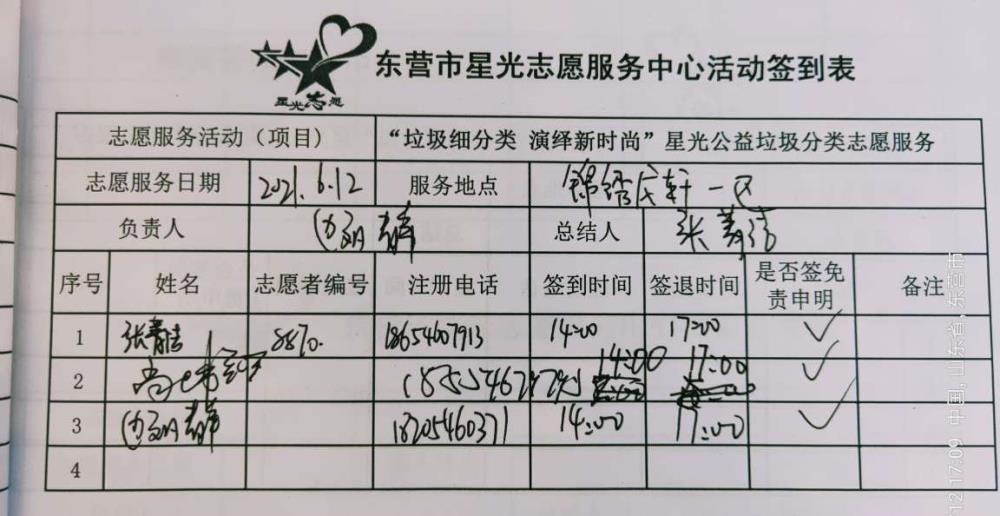 星光志愿
东营市星光志愿服务中心活动签到表
志愿服务活动（项目） “垃圾细分类 演绎新时尚”星光公益垃圾分类志愿服务
志愿服务日期 2021.6.12 服务地点 锦绣 轩一区
负责人 总结人 张
序号 姓名 志愿者编号 注册电话 签到时间 签退时间 是否签免责申明 备注
1 张 8870. 18654607913 14:00 17:00 ✓
2 尚 14:00 17:00 ✓
3 18205460371 14:00 17:00 ✓
4
12 17:09 中国,山东省,东营市